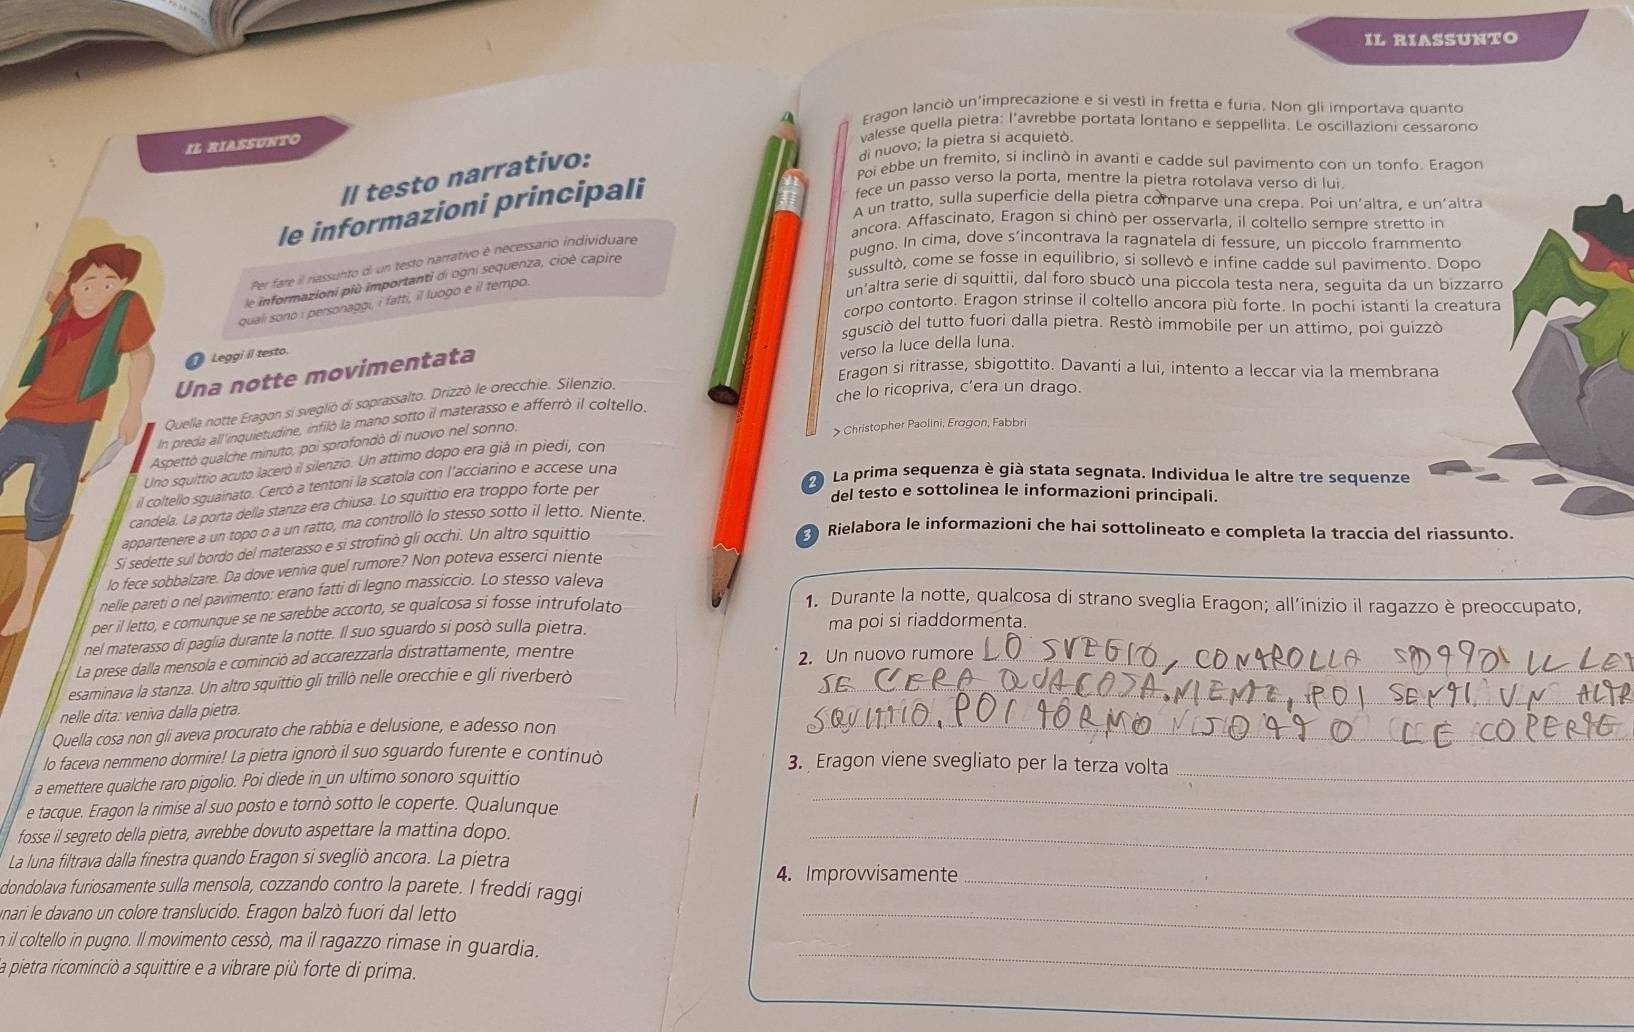 IL RIASSUNTO
Il testo narrativo:
le informazioni principali
Per fare il riassunto di un testo narrativo è necessario individuare
le informazioni più importanti di ogni sequenza, cioè capire
quali sono i personaggi, i fatti, il luogo e il tempo.
1 Leggi il testo.
Una notte movimentata
Quella notte Eragon si svegliò di soprassalto. Drizzò le orecchie. Silenzio.
In preda all'inquietudine, infilò la mano sotto il materasso e afferrò il coltello.
Aspettò qualche minuto, poi sprofondò di nuovo nel sonno.
Uno squittio acuto lacerò il silenzio. Un attimo dopo era già in piedi, con
il coltello sguainato. Cercò a tentoni la scatola con l'acciarino e accese una
candela. La porta della stanza era chiusa. Lo squittio era troppo forte per
appartenere a un topo o a un ratto, ma controllò lo stesso sotto il letto. Niente.
Si sedette sul bordo del materasso e si strofinò gli occhi. Un altro squittio
lo fece sobbalzare. Da dove veniva quel rumore? Non poteva esserci niente
nelle pareti o nel pavimento: erano fatti di legno massiccio. Lo stesso valeva
per il letto, e comunque se ne sarebbe accorto, se qualcosa si fosse intrufolato
nel materasso di paglia durante la notte. Il suo sguardo si posò sulla pietra.
La prese dalla mensola e cominciò ad accarezzarla distrattamente, mentre
esaminava la stanza. Un altro squittio gli trillò nelle orecchie e gli riverberò
nelle dita: veniva dalla pietra.
Quella cosa non gli aveva procurato che rabbia e delusione, e adesso non
lo faceva nemmeno dormire! La pietra ignorò il suo sguardo furente e continuò
a emettere qualche raro pigolio. Poi diede in un ultimo sonoro squittio
e tacque. Eragon la rimise al suo posto e tornò sotto le coperte. Qualunque
fosse il segreto della pietra, avrebbe dovuto aspettare la mattina dopo.
La luna filtrava dalla finestra quando Eragon si svegliò ancora. La pietra
dondolava furiosamente sulla mensola, cozzando contro la parete. I freddi raggi
unari le davano un colore translucido. Eragon balzò fuori dal letto
n il coltello in pugno. Il movimento cessò, ma il ragazzo rimase in guardia.
a pietra ricominciò a squittire e a vibrare più forte di prima.
IL RIASSUNTO
Eragon lanciò un'imprecazione e si vestì in fretta e furia. Non gli importava quanto
valesse quella pietra: l'avrebbe portata lontano e seppellita. Le oscillazioni cessarono
di nuovo; la pietra si acquietò.
Poi ebbe un fremito, si inclinò in avanti e cadde sul pavimento con un tonfo. Eragon
fece un passo verso la porta, mentre la pietra rotolava verso di lui.
A un tratto, sulla superficie della pietra comparve una crepa. Poi un'altra, e un'altra
ancora. Affascinato, Eragon si chinò per osservarla, il coltello sempre stretto in
pugno. In cima, dove s'incontrava la ragnatela di fessure, un piccolo frammento
sussultò, come se fosse in equilibrio, si sollevò e infine cadde sul pavimento. Dopo
un'altra serie di squittii, dal foro sbucò una piccola testa nera, seguita da un bizzarro
corpo contorto. Eragon strinse il coltello ancora più forte. In pochi istanti la creatura
sgusciò del tutto fuori dalla pietra. Restò immobile per un attimo, poi guizzò
verso la luce della luna.
Eragon si ritrasse, sbigottito. Davanti a lui, intento a leccar via la membrana
che lo ricopriva, c'era un drago.
> Christopher Paolini, Eragon, Fabbri
2 La prima sequenza è già stata segnata. Individua le altre tre sequenze
del testo e sottolinea le informazioni principali.
3 Rielabora le informazioni che hai sottolineato e completa la traccia del riassunto.
1. Durante la notte, qualcosa di strano sveglia Eragon; all'inizio il ragazzo è preoccupato,
ma poi si riaddormenta.
2. Un nuovo rumore LO SVEGIO, CONTROLLA SOTTO IL LET
SE C'ERA QUACOSA. NIENTE, POI SENTI UN ALTR
SQUITTIO. POI TORMO SOTTO LE COPERTE
3. Eragon viene svegliato per la terza volta
4. Improvvisamente